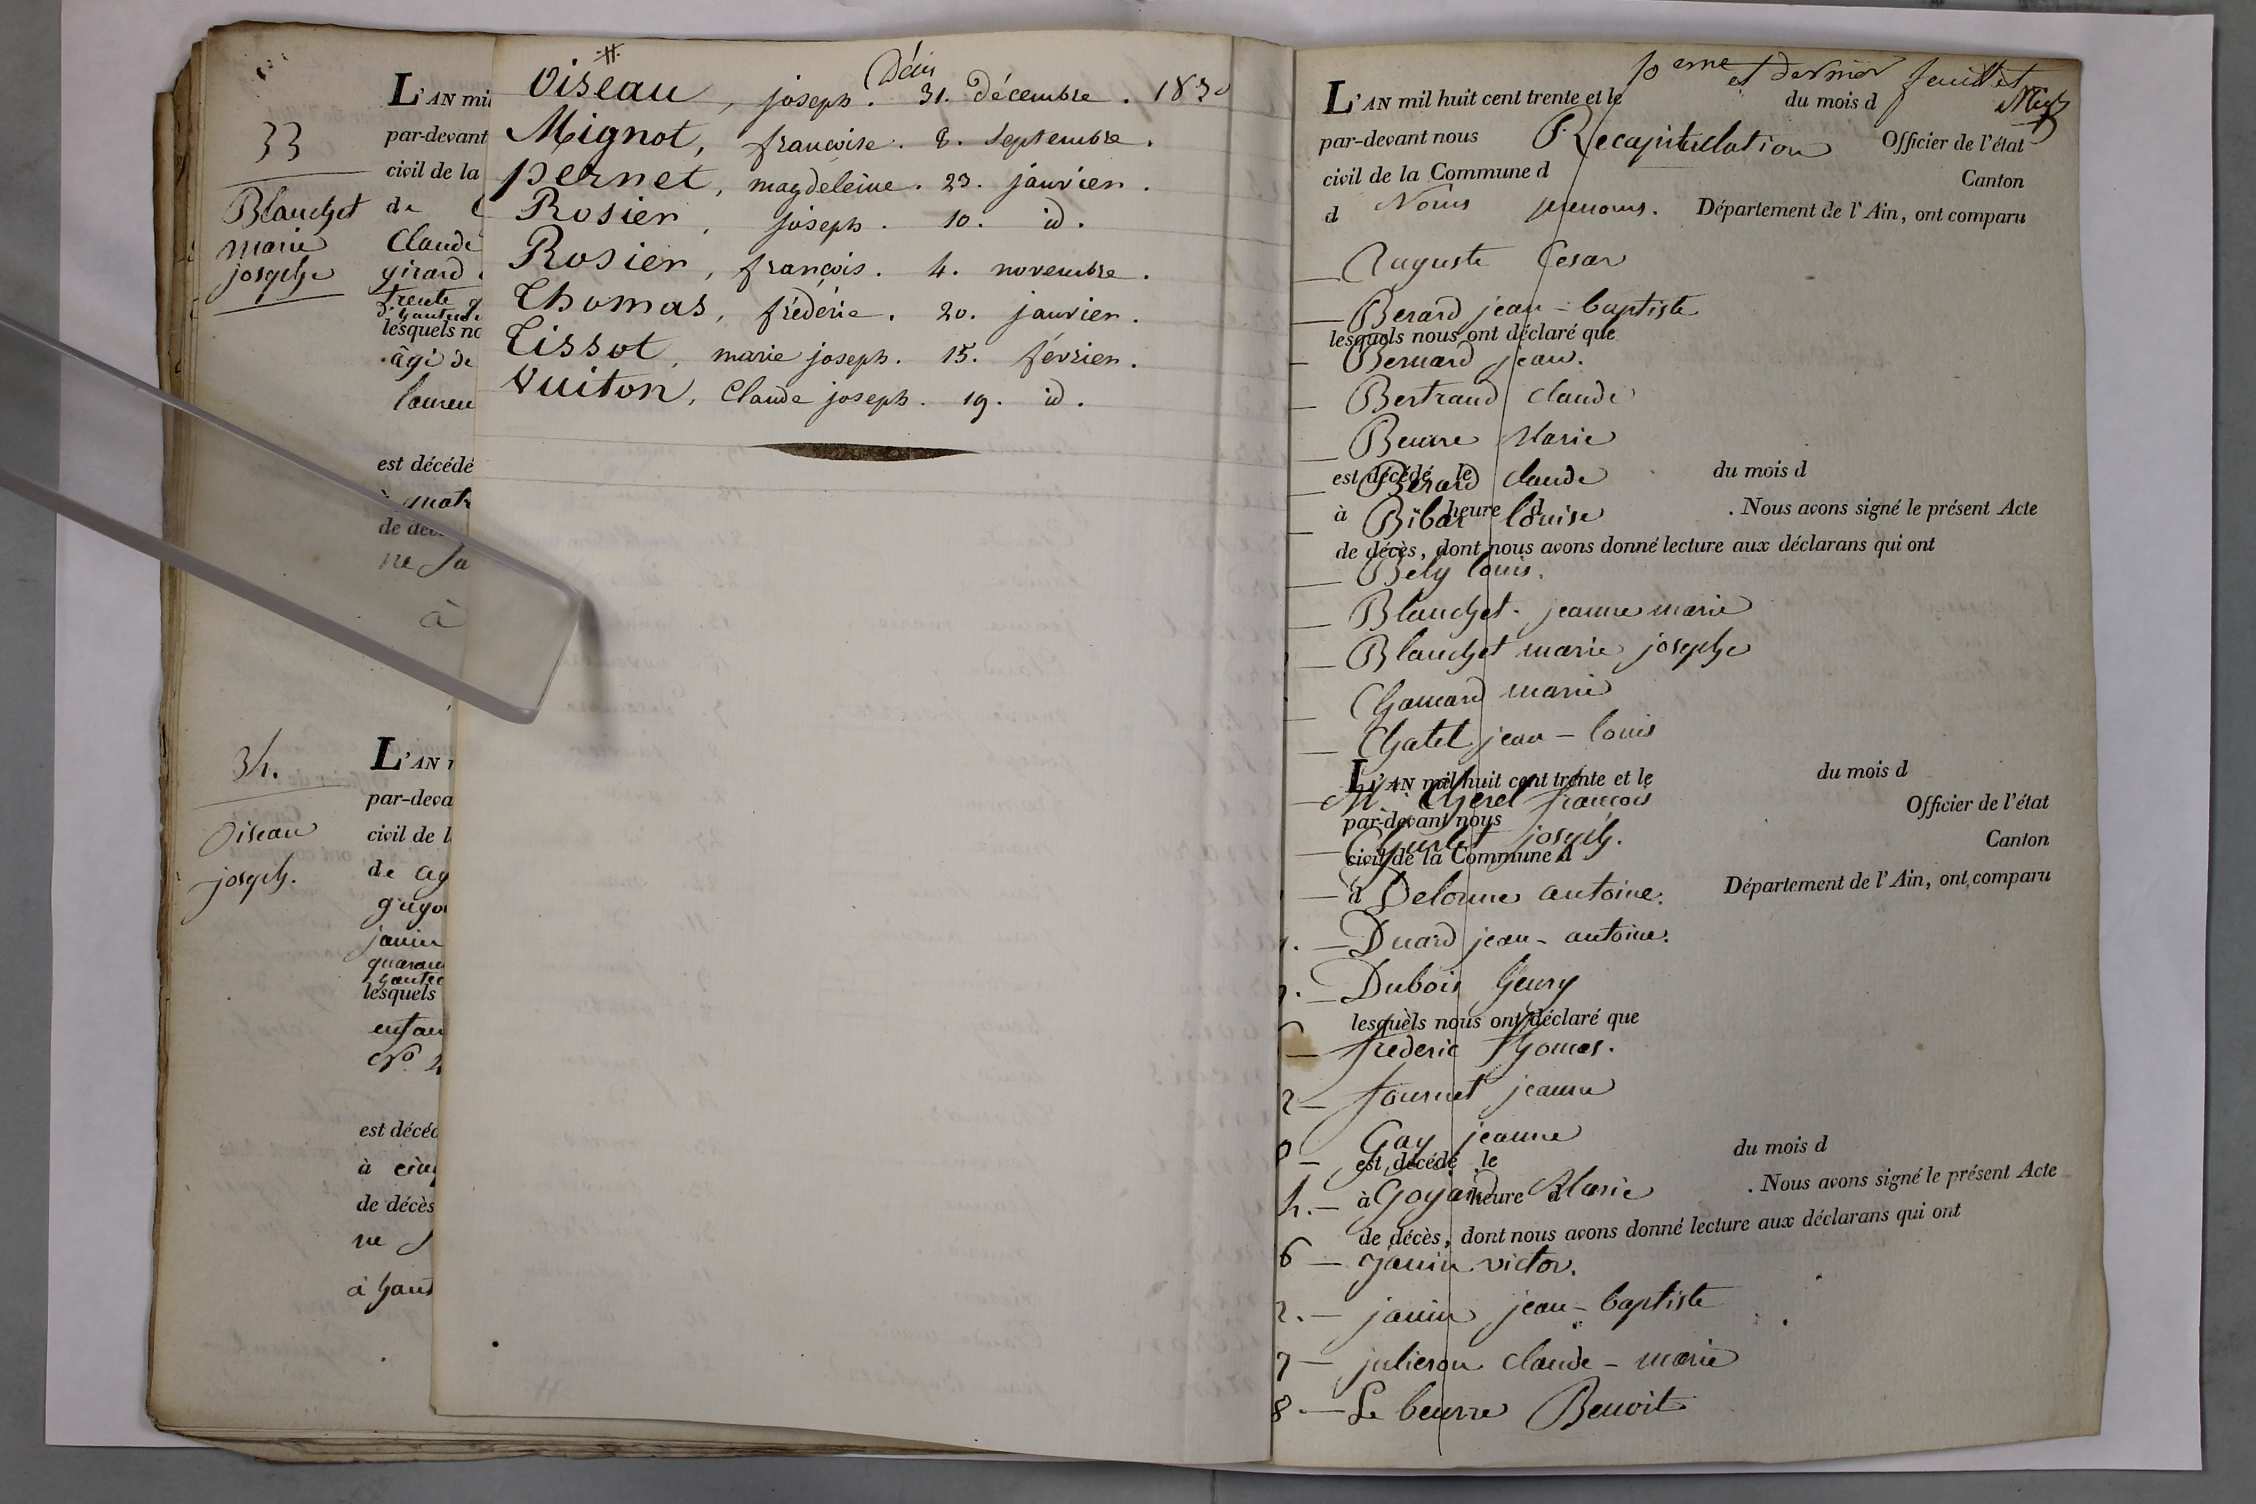 33
Blanchet
marie
josephe
L'AN mil
par-devant
civil de la
de
Claude
girard
trente
lesquels no
âgé de
est décédé
à quatr
de déc
ne Sa
à
34.
Oiseau
joseph.
L'AN
par-deva
civil de l
de
guyo
janin
lesquels
enfan
N°
est décéd
à cinq
de décès
ne
à haut
Décès
Oiseau, joseph. 31. décembre. 1830
Mignot, françoise. 8. septembre.
pernet, magdeleine. 23. janvier.
Rosier, joseph. 10. id.
Rosier, françois. 4. novembre.
Thomas, fréderic. 20. janvier.
Tissot, marie joseph. 15. février.
Vuiton, Claude joseph. 19. id.
10eme et dernier feuillet
L'AN mil huit cent trente et le du mois d
par-devant nous Recapitulation Officier de l'état
civil de la Commune d Canton
d Noms prenoms. Département de l'Ain, ont comparu
Auguste Cesar
Berard jean-baptiste
lesquels nous ont déclaré que
Bernard jean.
Bertrand claude
Beurre Marie
est décédé le du mois d
Berard claude
à heure d . Nous avons signé le présent Acte
Bibat louise
de décès, dont nous avons donné lecture aux déclarans qui ont
Bely louis.
Blanchet jeanne marie
Blanchet marie josephe
Chamard marie
Chatel jean-louis
L'AN mil huit cent trente et le du mois d
Cherel françois Officier de l'état
par-devant nous
joseph.
civil de la Commune d Canton
d Delorme antoine. Département de l'Ain, ont comparu
Duard jean-antoine.
Dubois henry
lesquels nous ont déclaré que
frederic thomas.
2 — fournet jeanne
Gay jeanne
est décédé le du mois d
4. — Goyard Marie
à heure d . Nous avons signé le présent Acte
de décès, dont nous avons donné lecture aux déclarans qui ont
6 — janin victor.
2. — janin jean-baptiste
7 — julieron claude-marie
8 — Le beurre Benoit